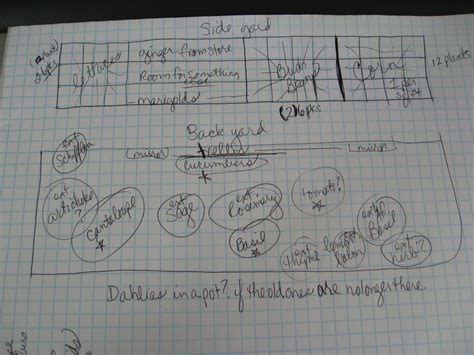 Side yard
lettuces
ginger-from store
Room for something
marigolds
Bush
Corn
1 per
sq ft
12 plants
(2) 6 pks
Back yard
ext
(mirror)
trellis
(mirror)
cucumbers
*
ext
artichokes
?
cantaloupe
*
ext
Sage
ext
Rosemary
Basil
*
tomato?
*
ext
Basil
ext
thyme
lemon
balm
ext
herb?
Dahlias in a pot? if the old ones are no longer there